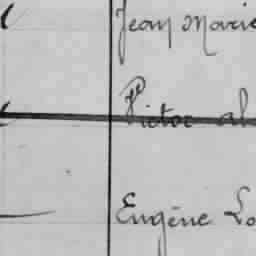 Jean Marie
Victor Al
Eugène Lo